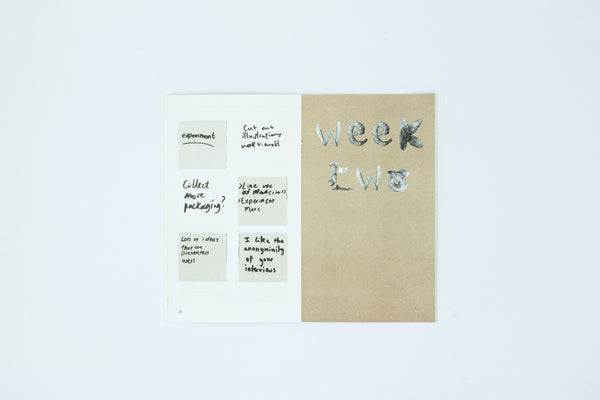 experiment
Cut out
illustrations
work v. well
Collect
more
packaging?
>Like use
of Materials
>Experiment
More
Lots of ideas
that are
presented
well
I like the
anonyminity
of your
interviews
week
two